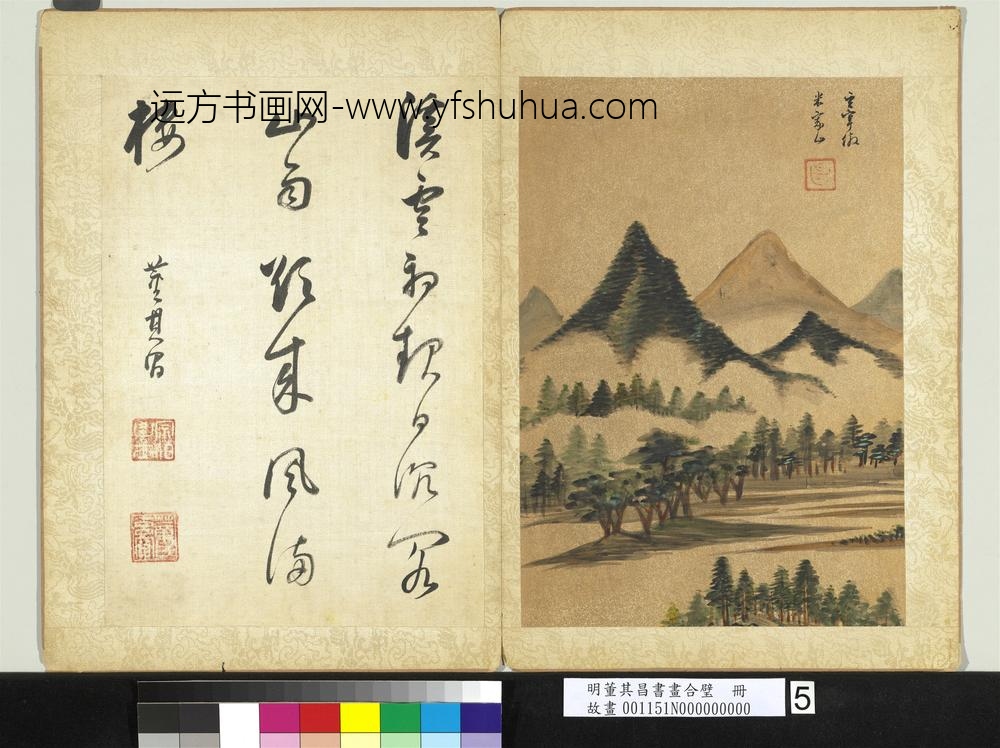 玄宰倣
米家山
溪雲初起日沉閣
山雨欲來風滿
樓
董其昌
远方书画网-www.yfshuhua.com
明董其昌書畫合璧 冊
故畫 001151N000000000
5